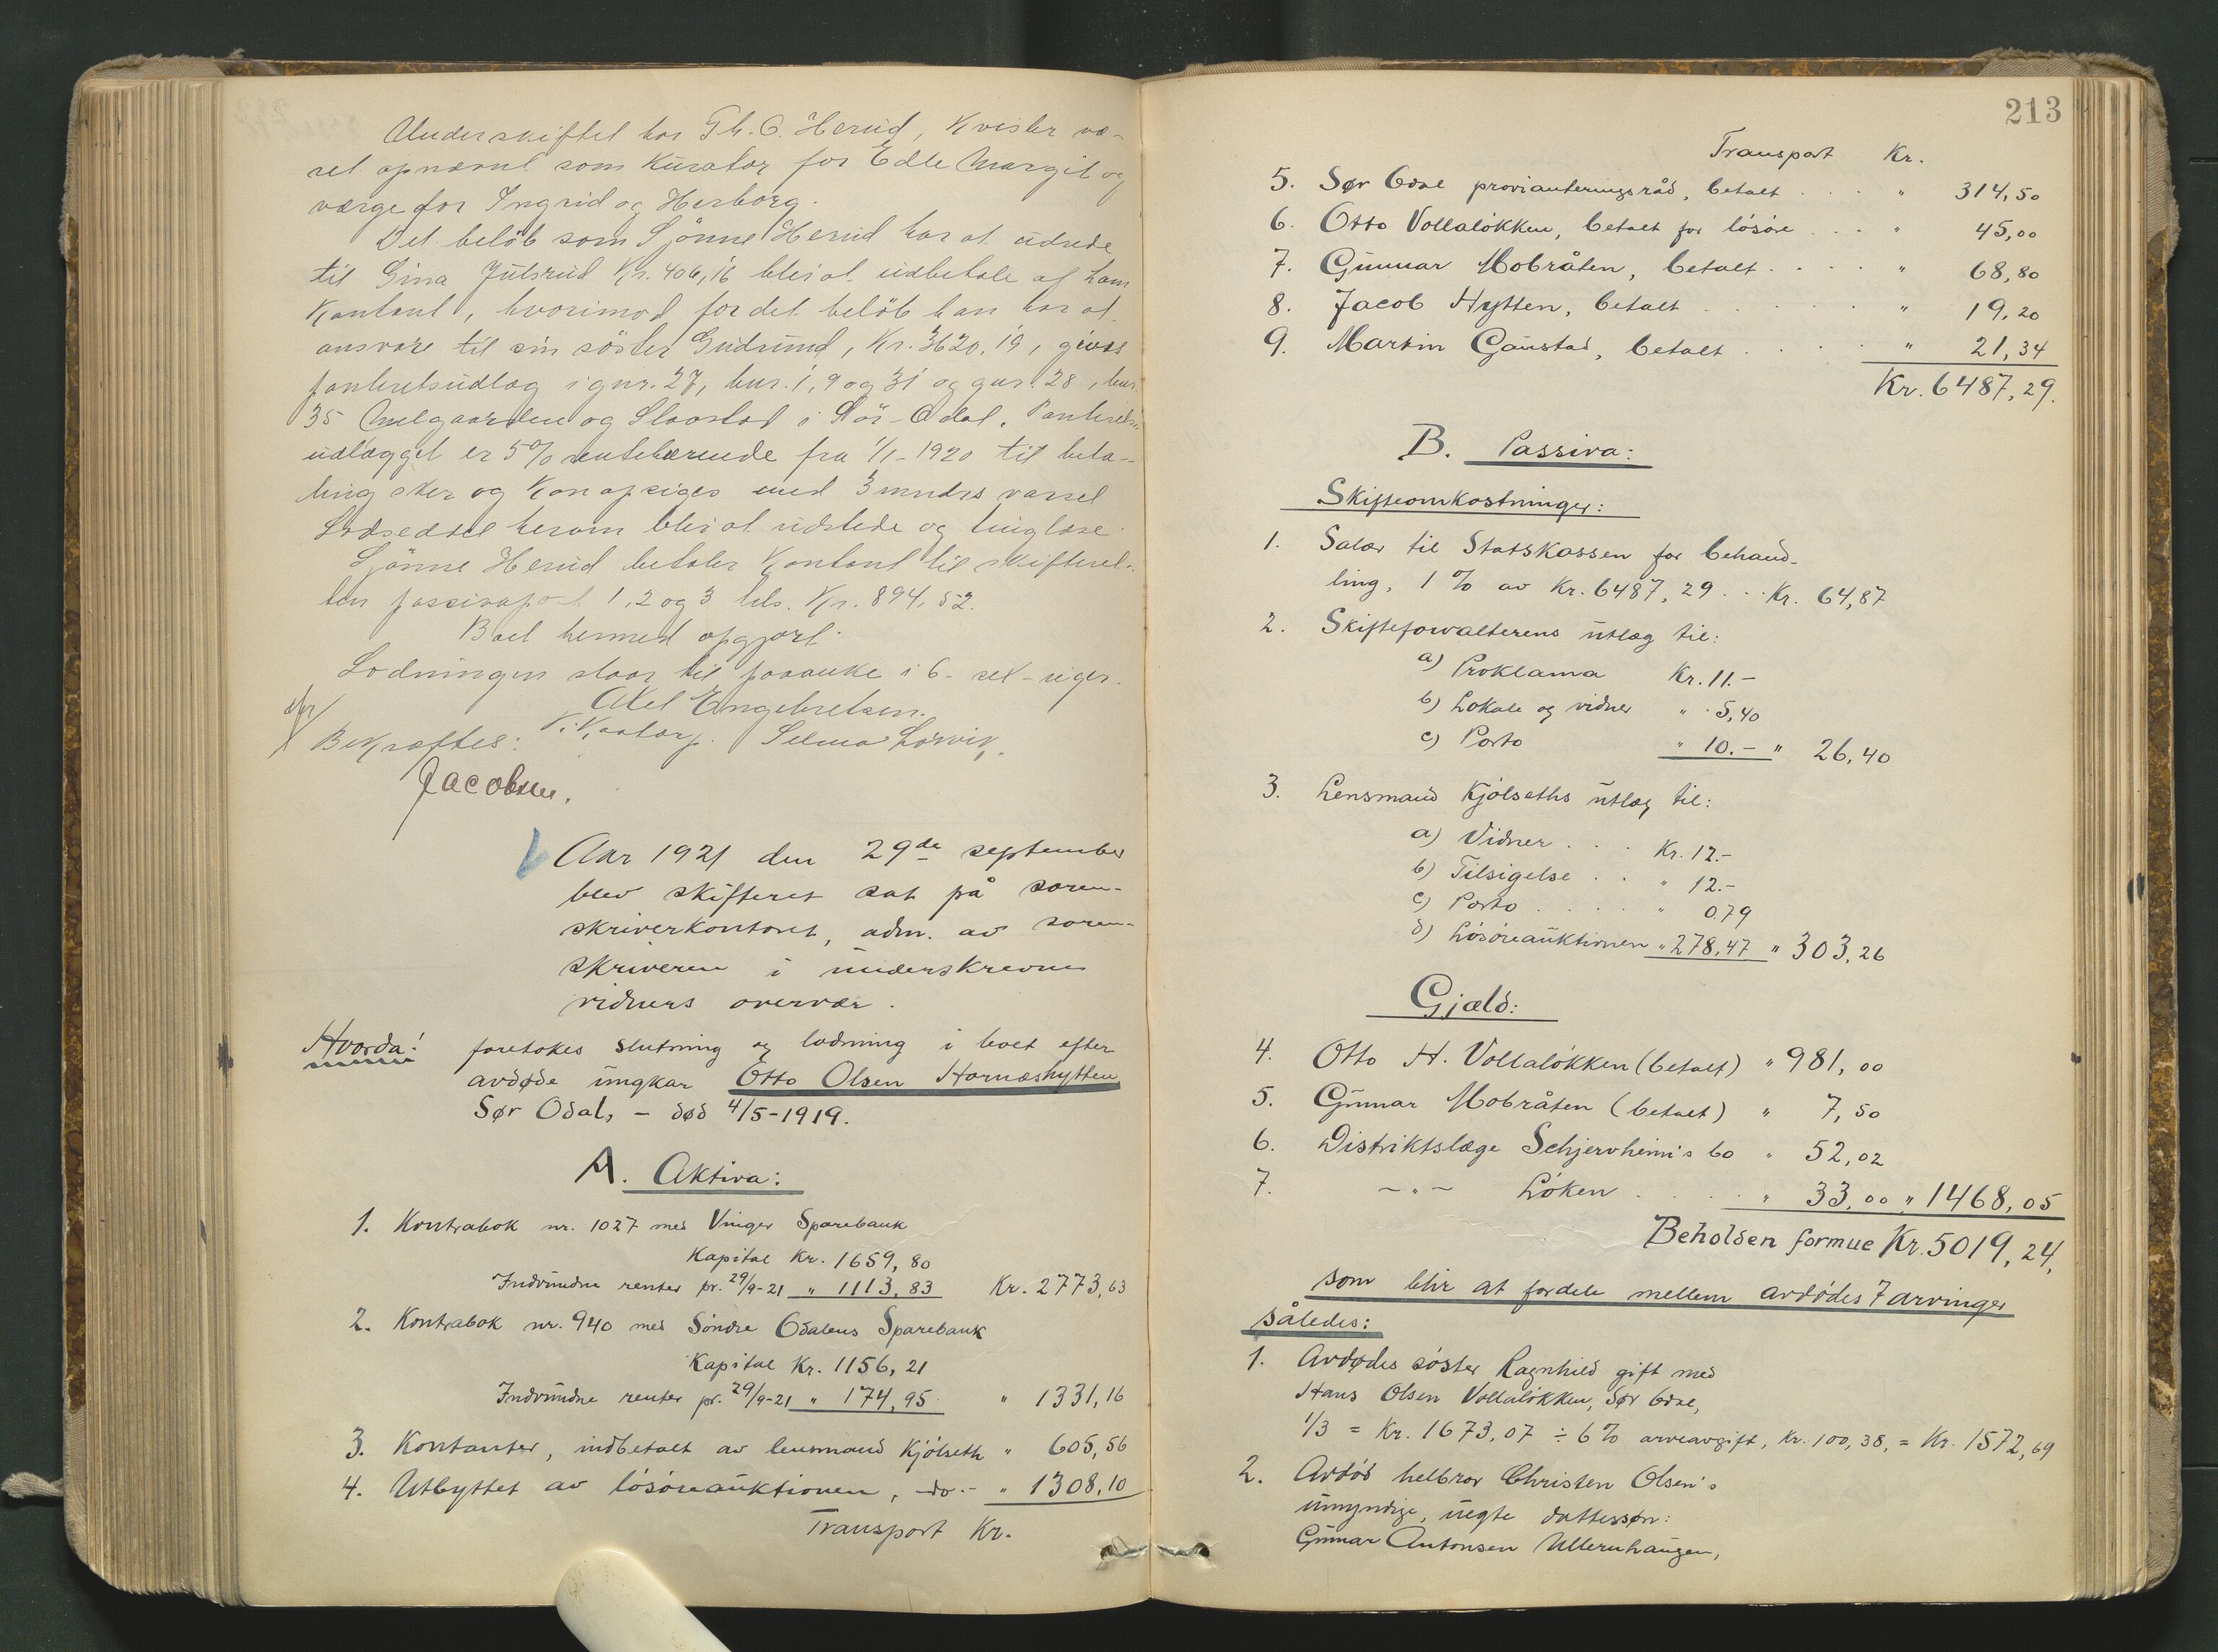 Underskiftet har Th. O. Herud, Kvisler væ-
ret opnævnt som Kurator for Edle Margit og
værge for Ingrid og Herborg.
Det beløb som Sjönne Herud har at udrede
til Gina Julsrud Kr. 406,16 blir at udbetale af ham
Kontant, hvorimod for det beløb han har at
ansvare til sin söster Gudrund, Kr. 3620,19, gives
panteretsudlæg i gnr. 27, bnr. 1, 9 og 31 og gnr. 28, bnr.
35 Melgaarden og Slaastad i Sör-Odal. Panterets-
udlægget er 5% rentebærende fra 1/1-1920 til beta-
ling sker og Kan opsiges med 3 mndrs varsel
Lodseddel herom blir at udstede og tinglæse.
Sjönne Herud betaler Kontant til skifteret-
ten passivapost 1, 2 og 3 tils. Kr. 894,52.
Boet hermed opgjort.
Lodningen staar til paaanke i 6 - sex - uger.
Axel Engebretsen.
Bekræftes: Selma
Jacobsen.
Aar 1921 den 29de september
blev skifteret sat på soren-
skriverkontoret, adm. av soren-
skriveren i underskrevne
vidners overvær.
Hvorda! foretokes slutning og lodning i boet efter
avdøde ungkar Otto Olsen Hornæshytten
Sør Odal, - død 4/5-1919.
A. Aktiva:
1. Kontrabok nr. 1027 med Vinger Sparebank
Kapital Kr. 1659,80
Indvundne renter pr. 29/9-21 " 1113,83 Kr. 2773,63
2. Kontrabok nr. 940 med Söndre Odalens Sparebank
Kapital Kr. 1156,21
Indvundne renter pr. 29/9-21 " 174,95 " 1331,16
3. Kontanter, indbetalt av lensmand Kjölseth " 605,56
4. Utbyttet av lösöreauktionen, -do.- " 1308,10
Transport Kr.
213
Transport Kr.
5. Sør Odal provianteringsråd, betalt . . . " 314,50
6. Otto Vollalökken, betalt for lösöre . . . " 45,00
7. Gunnar Mobråten, betalt . . . . " 68,80
8. Jacob Hytten, betalt . . . . " 19,20
9. Martin Gaustad, betalt . . . . " 21,34
Kr. 6487,29.
B. Passiva:
Skifteomkostninger:
1. Salær til Statskassen for behand-
ling, 1 % av Kr. 6487,29 . . . Kr. 64,87
2. Skifteforvalterens utlæg til:
a) Proklama Kr. 11.-
b) Lokale og vidner " 5,40
c) Porto " 10.- " 26,40
3. Lensmand Kjölseths utlæg til:
a) Vidner . . . Kr. 12.-
b) Tilsigelse . . " 12.-
c) Porto . . . . " 0.79
d) Lösöreauktionen " 278,47 " 303,26
Gjæld:
4. Otto H. Vollalökken (betalt) " 981,00
5. Gunnar Mobråten (betalt) " 7,50
6. Distriktslæge Schjervheim's bo " 52,02
7. - " - Löken . . . . " 33,00 " 1468,05
Beholden formue Kr. 5019,24,
som blir at fordele mellem avdødes 7 arvinger
således:
1. Avdødes söster Ragnhild gift med
Hans Olsen Vollalökken, Sør Odal,
1/3 = Kr. 1673,07 ÷ 6 % arveavgift, Kr. 100,38, = Kr. 1572,69
2. Avdöd helbror Christen Olsen's
umyndige, uegte dattersøn:
Gunnar Antonsen Ullernhaugen,